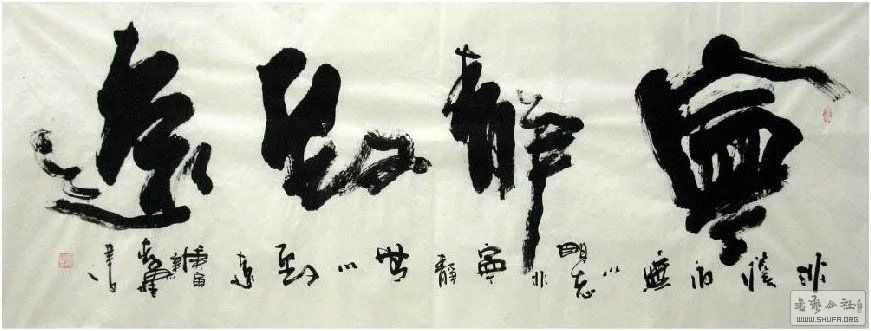 寧靜致遠
非澹泊無以明志非寧靜無以致遠
書藝公社
WWW.SHUFA.ORG